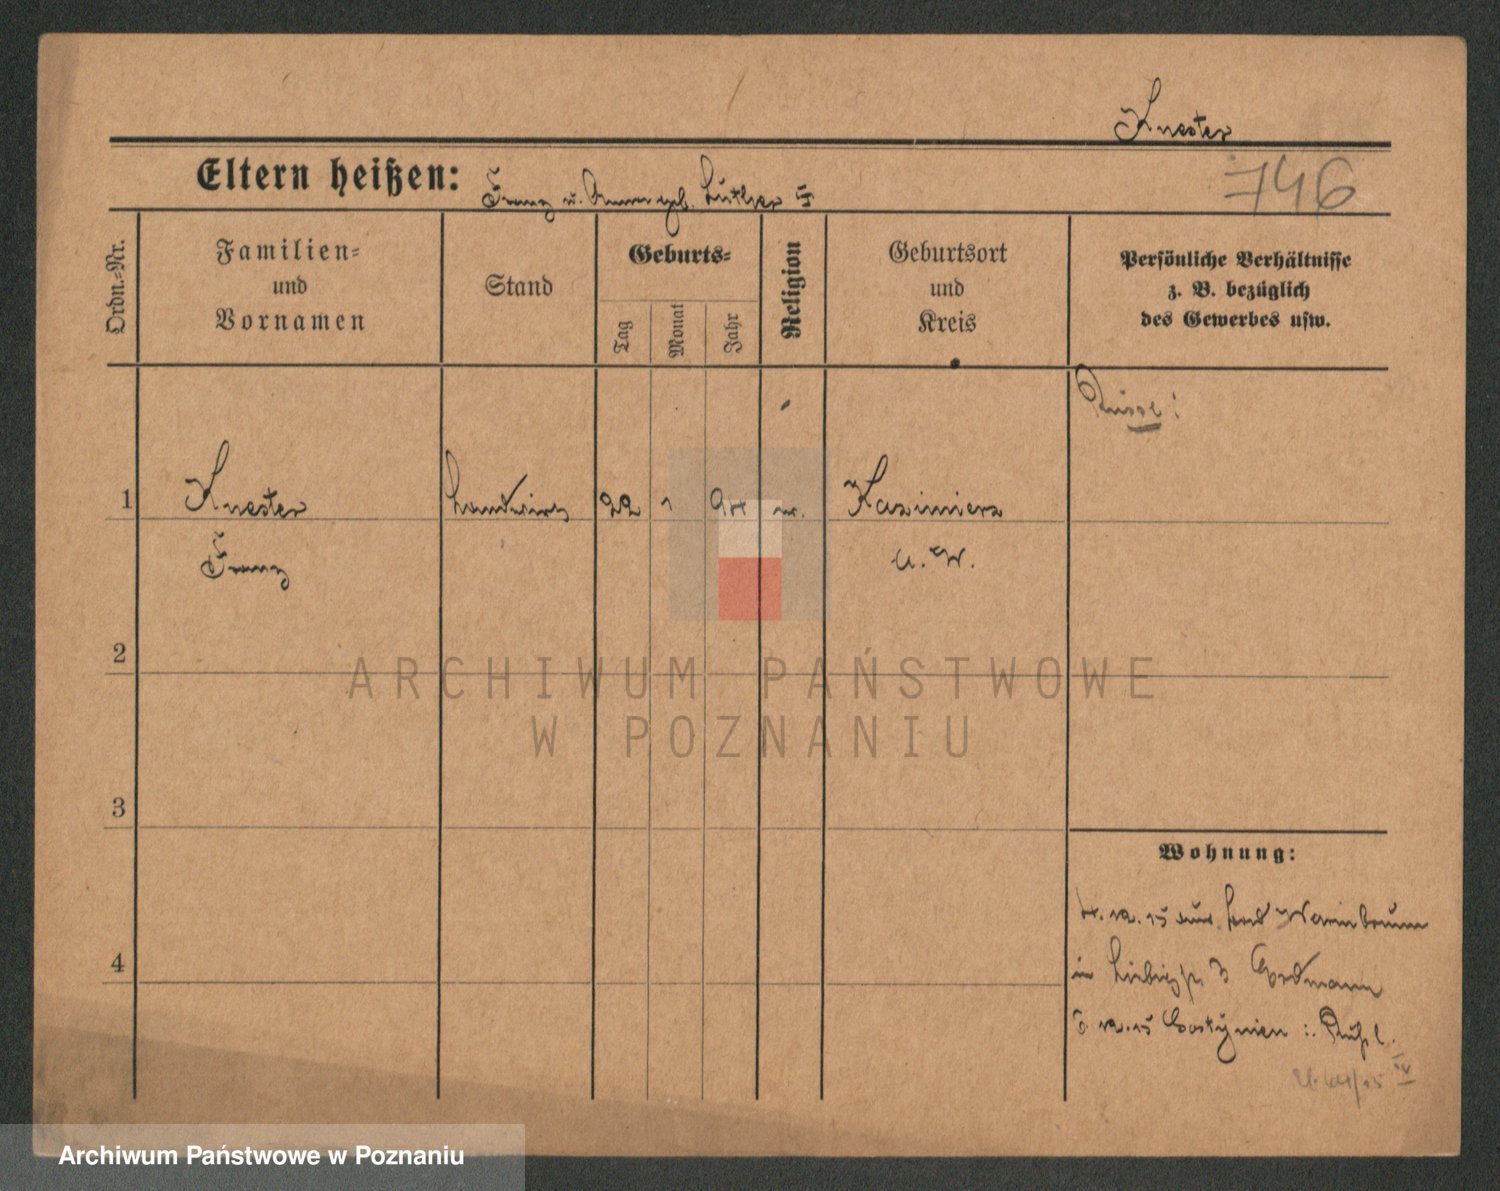 Knester
Eltern heißen: Franz u. Anna geb. Luther
746
Ordn.-Nr.
Familien-
und
Vornamen
Stand
Geburts-
Tag
Monat
Jahr
Religion
Geburtsort
und
Kreis
Persönliche Verhältnisse
z. B. bezüglich
des Gewerbes usw.
Russe!
1 Knester Landwirt 22 1 Kazimierz
Franz
2
3
4
ARCHIWUM PAŃSTWOWE
W POZNANIU
Wohnung:
in 3 Erdmann
Archiwum Państwowe w Poznaniu